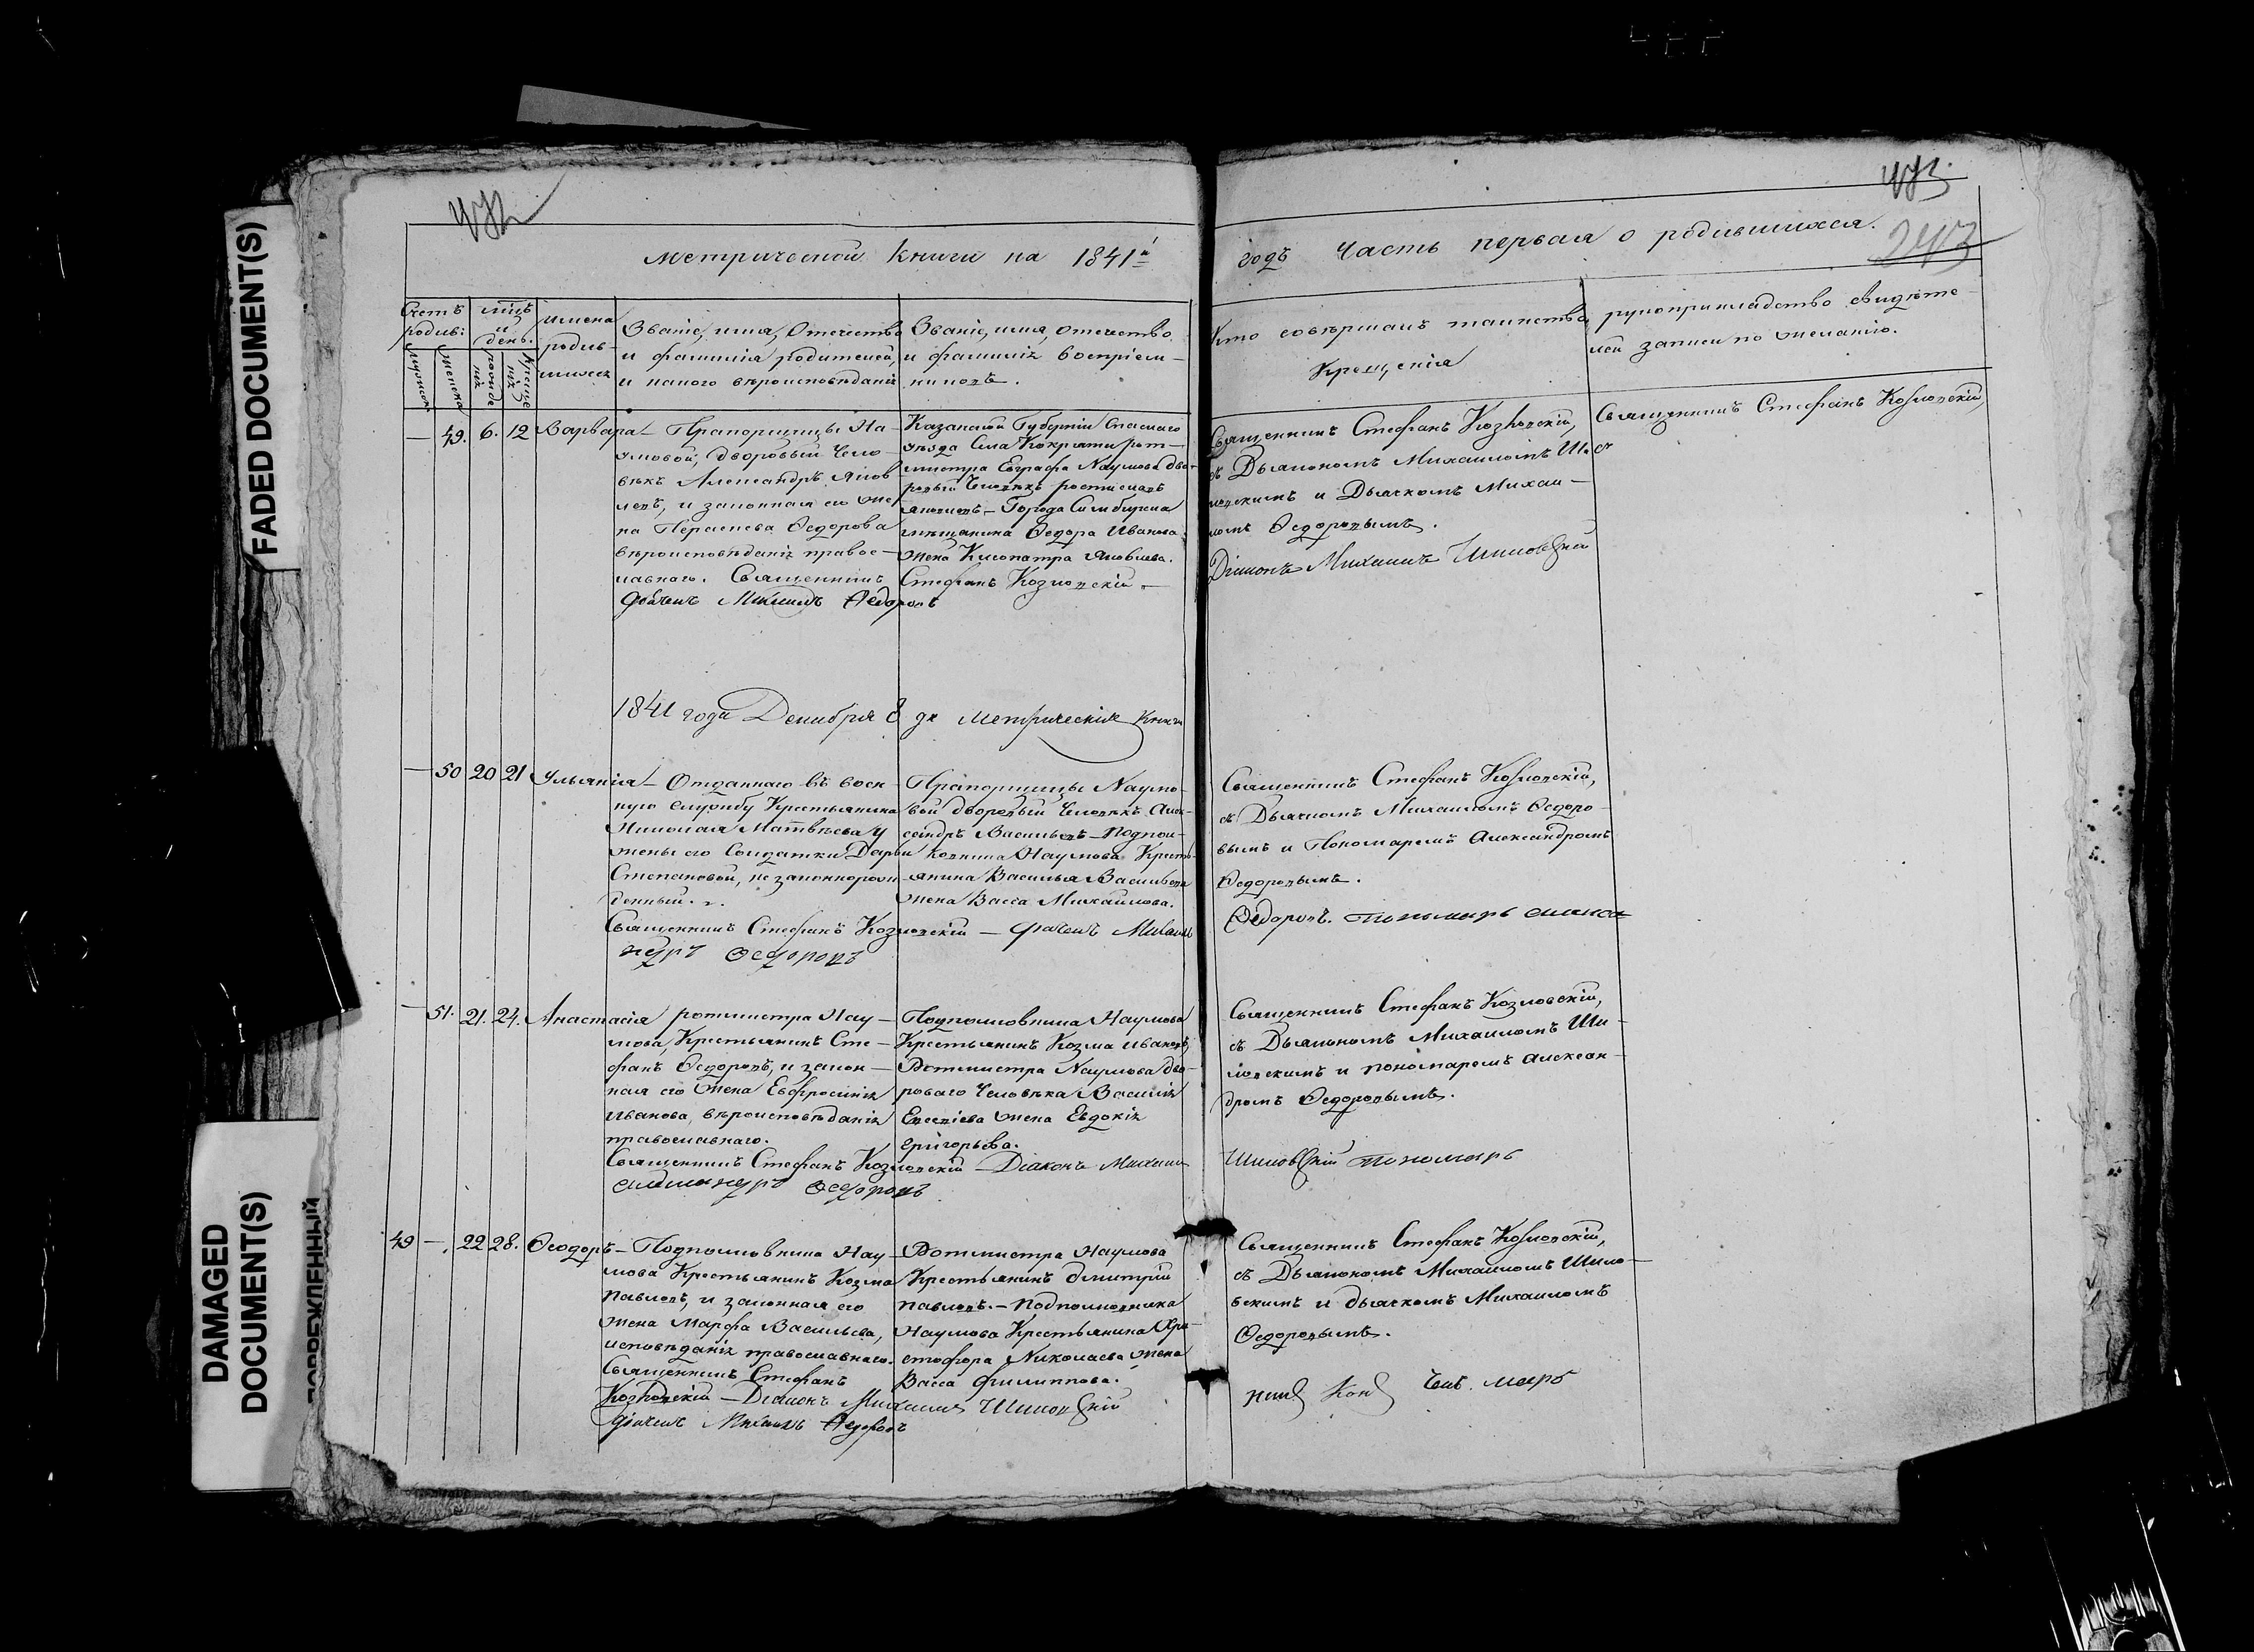 FADED DOCUMENT(S)
DAMAGED
DOCUMENT(S)
ПОВРЕЖДЕННЫЙ
472
473
243
Метрической книги на 1841й
годъ Часть первая о родившихся.
Счетъ родив:
мужеска
женска
мцъ и день.
рожденія
крещенія
имена родив-
шихся
Званіе, имя, Отчество
и фамилія родителей,
и какого вѣроисповѣданія
Званіе, имя, отчество
и фамилія воспріем-
никовъ.
Кто совершалъ таинство
Крещенія
рукоприкладство свидѣте-
лей записи по желанію.
— 49. 6. 12 Варвара
Прапорщицы На-
умовой, дворовый Чело-
вѣкъ Александръ Яков
левъ, и законная его же
на Параскева Ѳедорова
вѣроисповѣданія правос-
лавнаго. Священникъ Стефанъ Козловскій —
Дьячекъ Михаилъ Ѳедоровъ
Казанской Губерніи Спаскаго
уѣзда Села Кокряти рот-
мистра Евграфа Наумова дво-
ровый Человѣкъ
Яковлевъ — Города Симбирска
мѣщанина Ѳедора Иванова
жена Клеопатра Яковлева.
Священникъ Стефанъ Козловскій,
съ Дьякономъ Михаиломъ Ши
ловскимъ и Дьячкомъ Михаи-
ломъ Ѳедоровымъ.
Діаконъ Михаилъ Шиловскій
Священникъ Стефанъ Козловскій,
1841 года Декабря 8 дн Метрическія Книги
— 50 20 21 Ульянія
Отданнаго въ воен-
ную службу Крестьянина
Николая Матвѣева у
жены его Солдатки Дарьи
Степановой, незаконнорож-
денный.
Священникъ Стефанъ Козловскій — Дьячекъ Михаилъ
ндръ Ѳедоровъ
Прапорщицы Наумо-
вой дворовый Человѣкъ Алек-
сандръ Васильевъ — Подпол-
ковника Наумова Кресть-
янина Василья Васильева
жена Васса Михайлова.
Священникъ Стефанъ Козловскій,
съ Дьячкомъ Михаиломъ Ѳедоро-
вымъ и Пономаремъ Александромъ
Ѳедоровымъ.
Ѳедоровъ. Пономарь Алекса
— 51. 21. 24. Анастасія
ротмистра Нау-
мова, Крестьянинъ Сте-
фанъ Ѳедоровъ, и закон-
ная его жена Евфросинія
Иванова, вѣроисповѣданія
православнаго.
Священникъ Стефанъ Козловскій — Діаконъ Михаилъ
Александръ Ѳедоровъ
Подполковника Наумова
Крестьянинъ Козма Ивановъ,
Ротмистра Наумова дво-
роваго Человѣка Василія
Евсевіева жена Евдокія
Григорьева.
Священникъ Стефанъ Козловскій,
съ Дьякономъ Михаиломъ Ши-
ловскимъ и пономаремъ Алексан-
дромъ Ѳедоровымъ.
Шиловскій Пономарь
49 — 22 28. Ѳеодоръ
Подполковника Нау-
мова Крестьянинъ Козма
Павловъ, и законная его
жена Марфа Васильева,
исповѣданія православнаго.
Священникъ Стефанъ
Козловскій — Діаконъ Михаилъ Шиловскій
Дьячекъ Михаилъ Ѳедоровъ
Ротмистра Наумова
Крестьянинъ Дмитрій
Павловъ. — Подполковника
Наумова Крестьянина Хри-
стофора Николаева жена
Васса Филиппова.
Священникъ Стефанъ Козловскій,
съ Дьякономъ Михаиломъ Шило-
вскимъ и дьячкомъ Михаиломъ
Ѳедоровымъ.